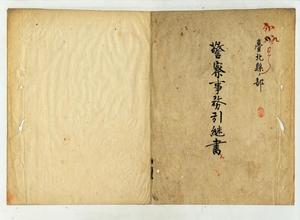 臺北縣ノ部
警察事務引継書